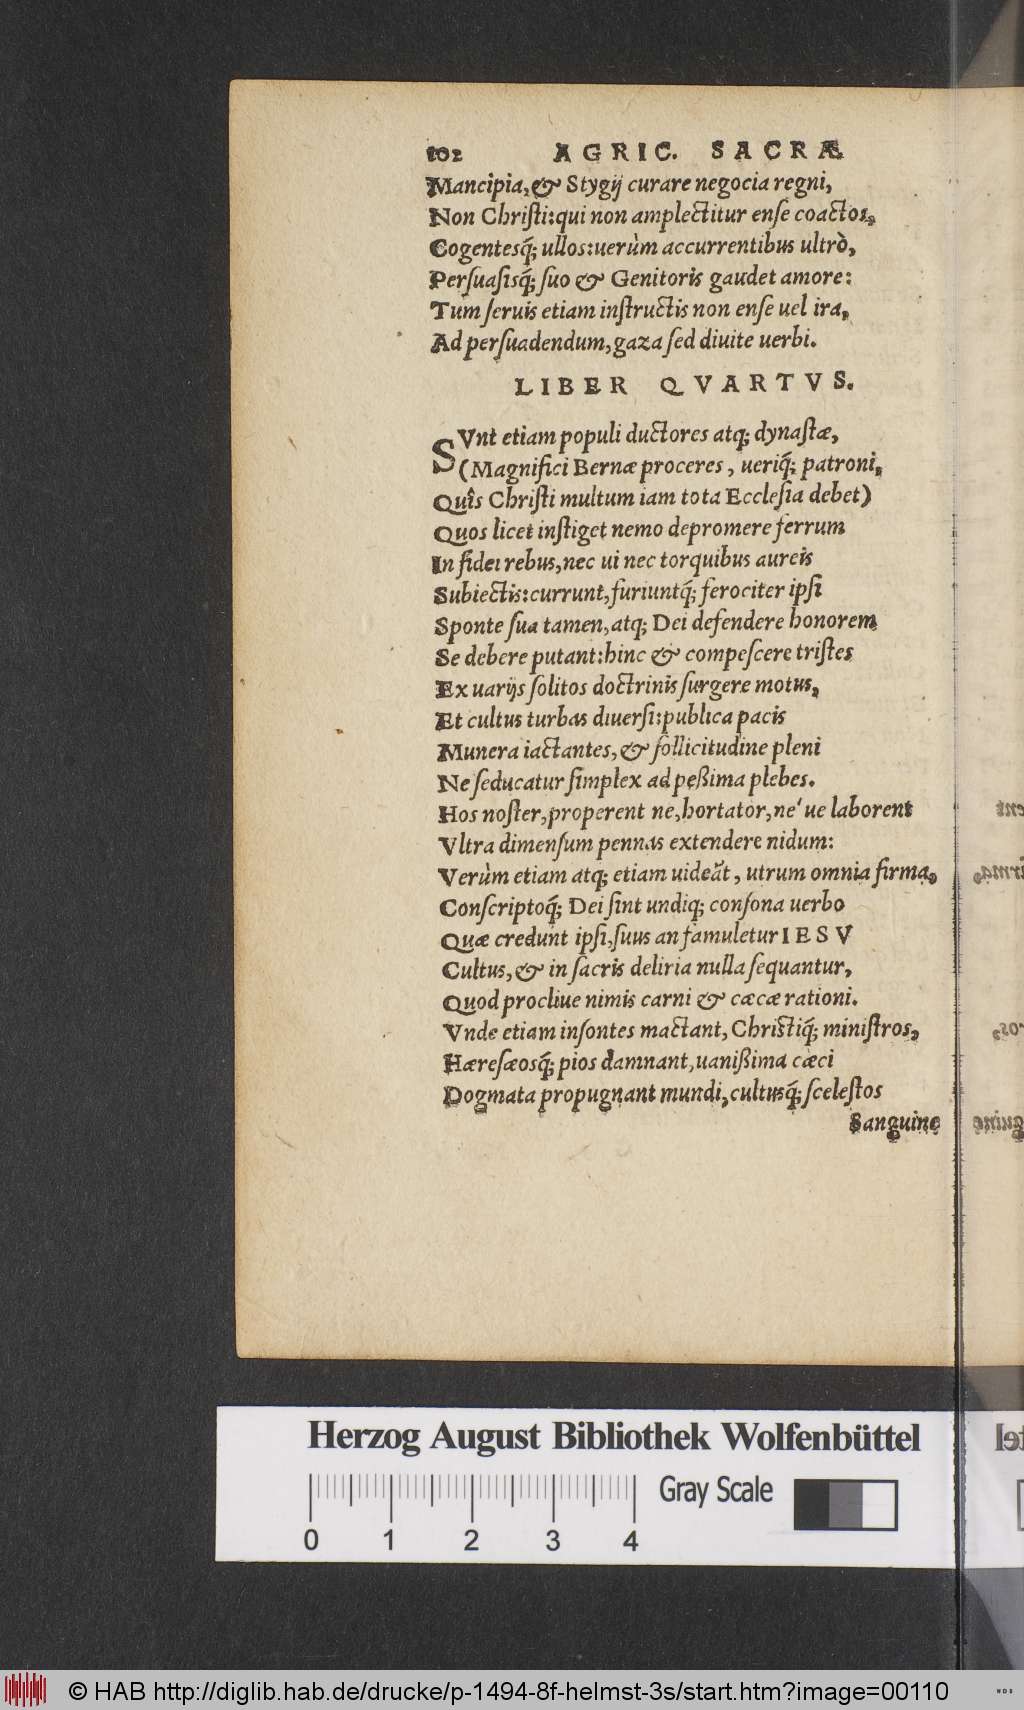 102 AGRIC. SACRÆ
Mancipia, & Stygij curare negocia regni,
Non Christi: qui non amplectitur ense coactos,
Cogentesq́; ullos: uerùm accurrentibus ultrò,
Persuasisq́; suo & Genitoris gaudet amore:
Tum seruis etiam instructis non ense uel ira,
Ad persuadendum, gaza sed diuite uerbi.
LIBER QVARTVS.
SVnt etiam populi ductores atq; dynastæ,
(Magnifici Bernæ proceres, ueriq́; patroni,
Quîs Christi multum iam tota Ecclesia debet)
Quos licet instiget nemo depromere ferrum
In fidei rebus, nec ui nec torquibus aureis
Subiectis: currunt, furiuntq́; ferociter ipsi
Sponte sua tamen, atq; Dei defendere honorem
Se debere putant: hinc & compescere tristes
Ex uarijs solitos doctrinis surgere motus,
Et cultus turbas diuersi: publica pacis
Munera iactantes, & sollicitudine pleni
Ne seducatur simplex ad peßima plebes.
Hos noster, properent ne, hortator, né ue laborent
Vltra dimensum pennas extendere nidum:
Verùm etiam atq; etiam uideāt, utrum omnia firma,
Conscriptoq́; Dei sint undiq; consona uerbo
Quæ credunt ipsi, suus an famuletur IESV
Cultus, & in sacris deliria nulla sequantur,
Quod procliue nimis carni & cæcæ rationi.
Vnde etiam insontes mactant, Christiq́; ministros,
Hæresæosq́; pios damnant, uanißima cæci
Dogmata propugnant mundi, cultusq́; scelestos
Sanguine
Herzog August Bibliothek Wolfenbüttel
Gray Scale
0 1 2 3 4
© HAB http://diglib.hab.de/drucke/p-1494-8f-helmst-3s/start.htm?image=00110